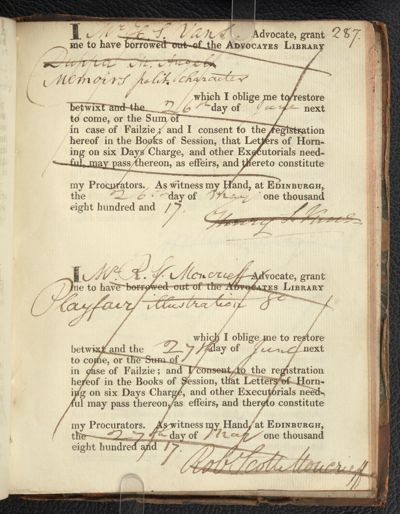 287.
I Mr H. S. Vans. Advocate, grant
me to have borrowed out of the ADVOCATES LIBRARY
Memoirs polit: character
which I oblige me to restore
betwixt and the 26th day of June next
to come, or the Sum of
in case of Failzie; and I consent to the registration
hereof in the Books of Session, that Letters of Horn-
ing on six Days Charge, and other Executorials need-
ful, may pass thereon, as effeirs, and thereto constitute
my Procurators. As witness my Hand, at EDINBURGH,
the 26. day of May one thousand
eight hundred and 17.
Henry S. Vans
I Mr R. S. Moncrieff Advocate, grant
me to have borrowed out of the ADVOCATES LIBRARY
Playfair's illustration &c
which I oblige me to restore
betwixt and the 27th day of June next
to come, or the Sum of
in case of Failzie; and I consent to the registration
hereof in the Books of Session, that Letters of Horn-
ing on six Days Charge, and other Executorials need-
ful may pass thereon, as effeirs, and thereto constitute
my Procurators. As witness my Hand, at EDINBURGH,
the 27th day of May one thousand
eight hundred and 17.
Rob. Scott Moncrieff